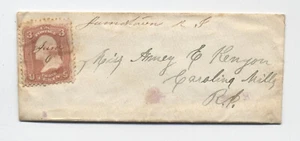 Jamestown R I
Miss Amey E Kenyon
Carolina Mills
R.I.
3 3